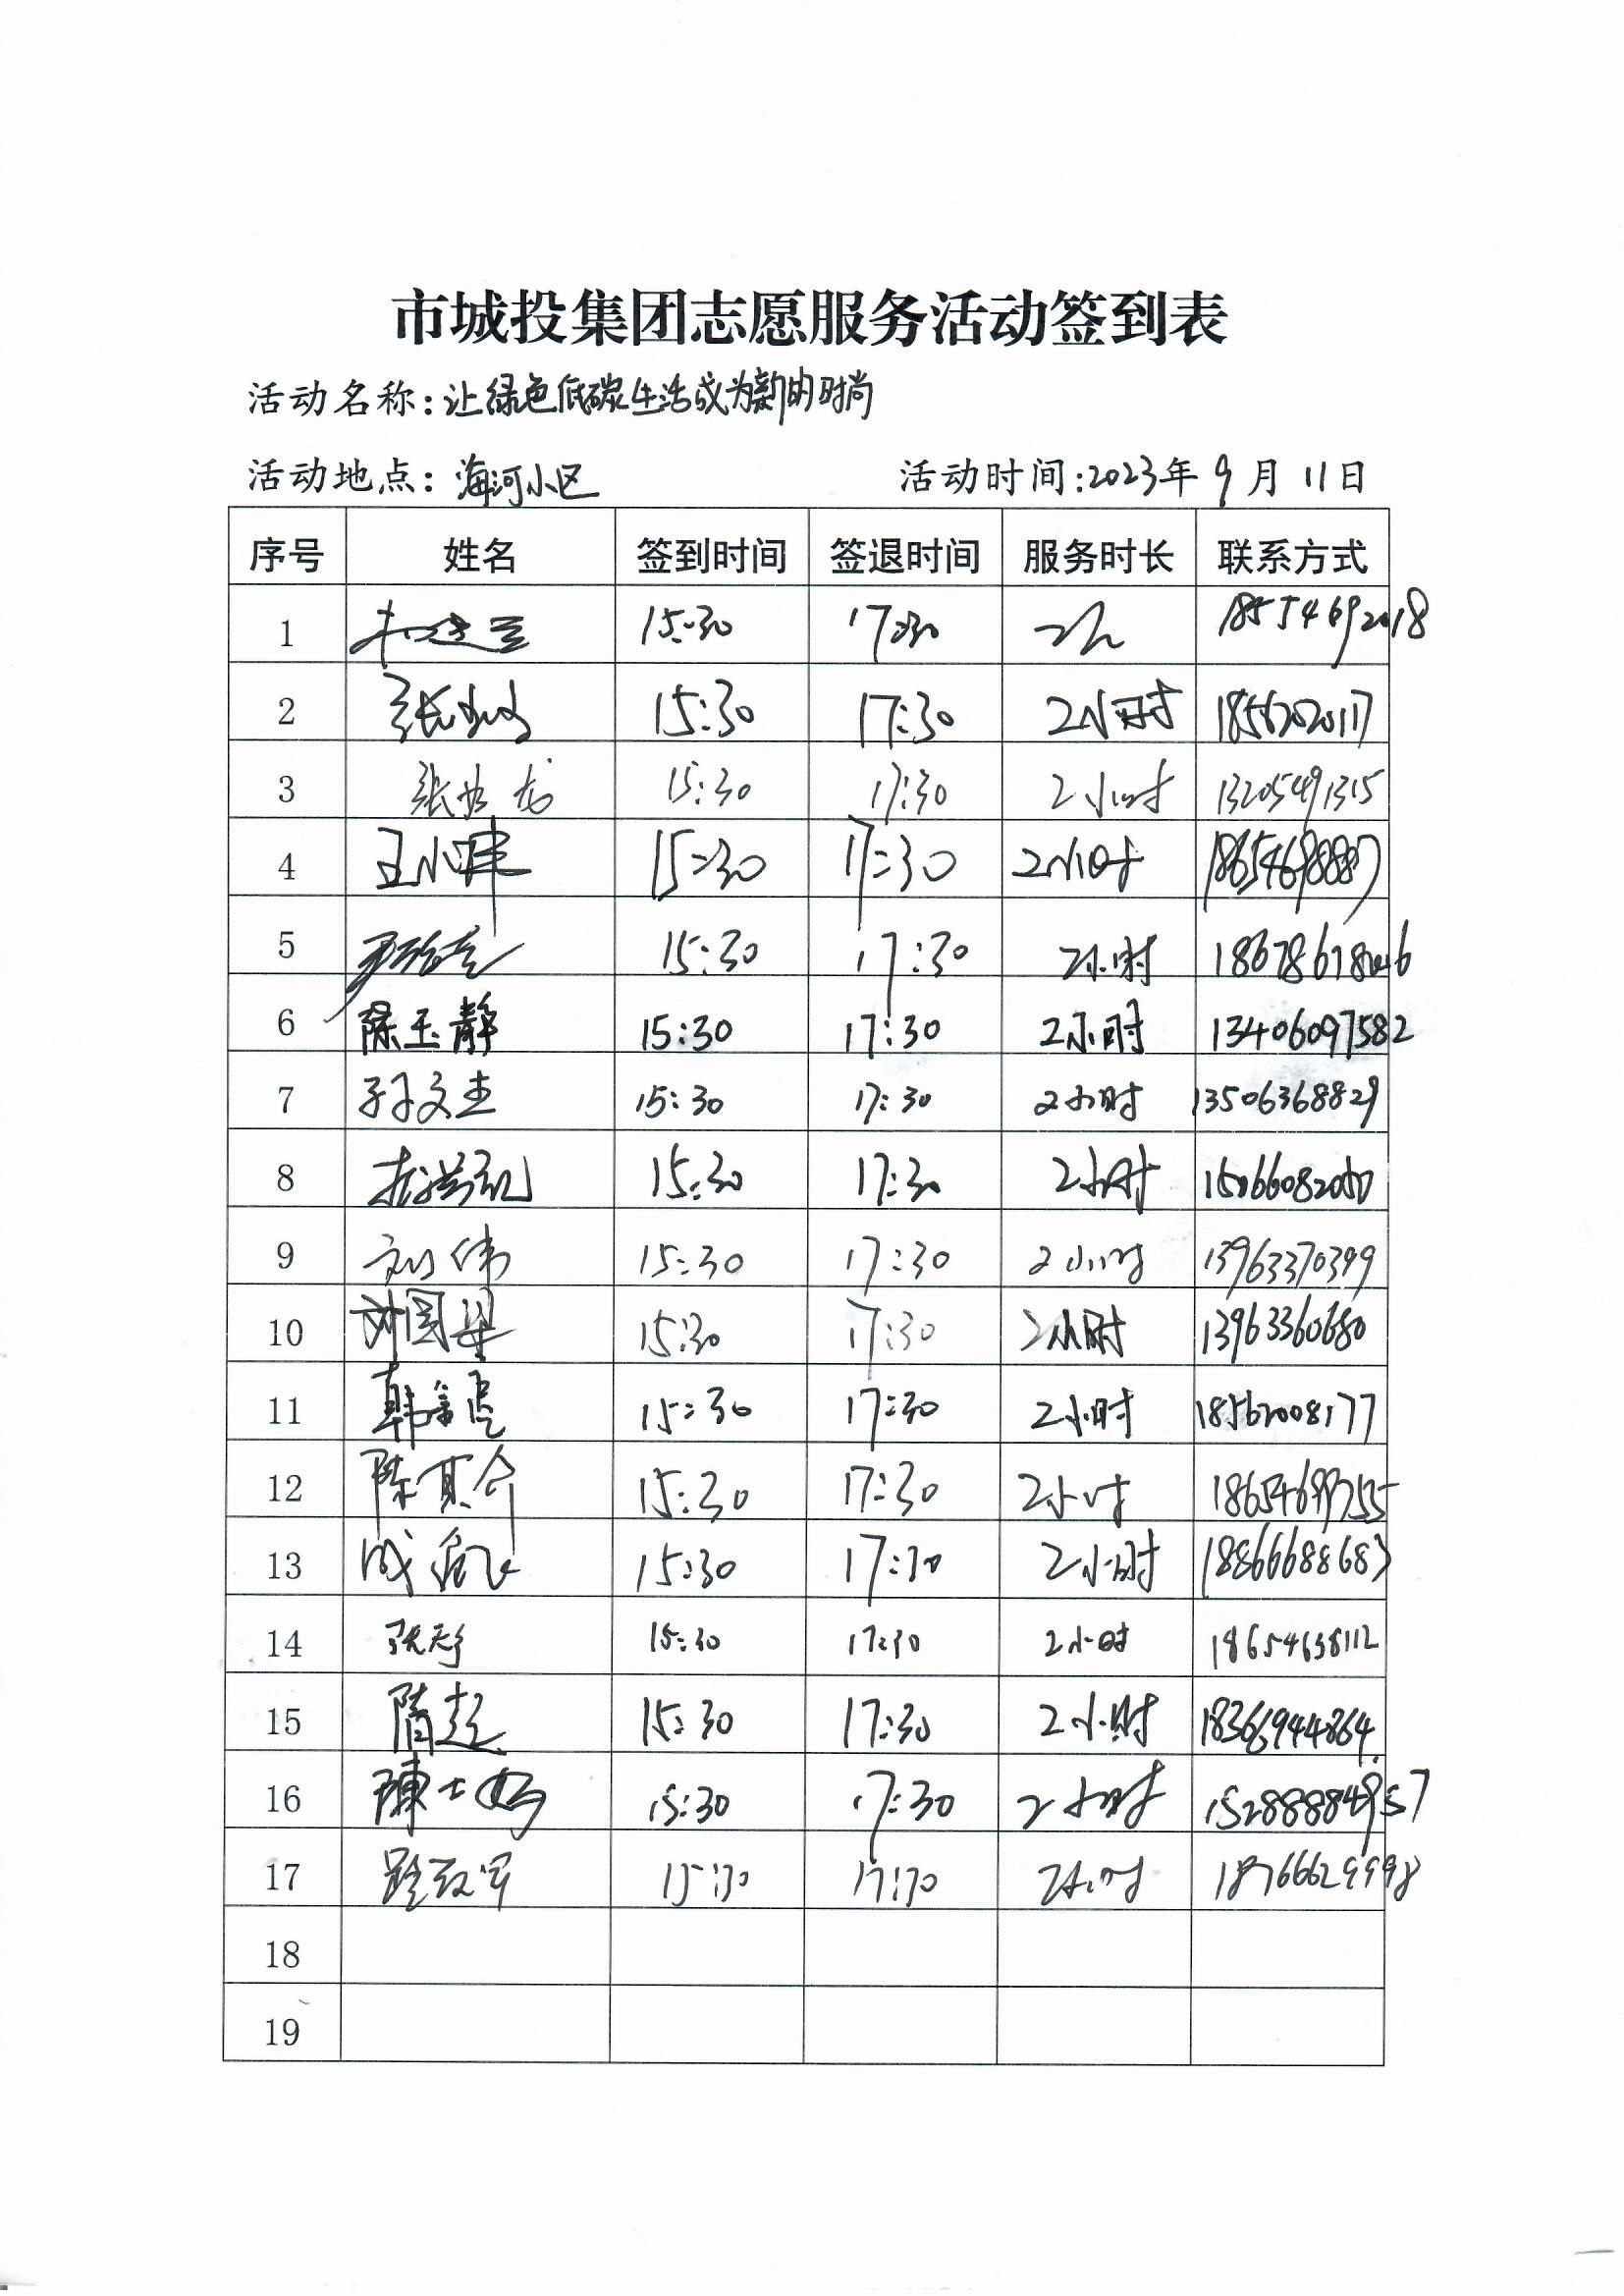 市城投集团志愿服务活动签到表
活动名称:让绿色低碳生活成为新的时尚
活动地点:海河小区 活动时间:2023年9月11日
序号 姓名 签到时间 签退时间 服务时长 联系方式
1 15:30 17:30 18554692018
2 张 15:30 17:30 2小时
3 张 龙 15:30 17:30 2小时 13205491315
4 王小 15:30 17:30 2小时
5 15:30 17:30 2小时
6 陈玉静 15:30 17:30 2小时 13406097582
7 孙文杰 15:30 17:30 2小时 13506368829
8 15:30 17:30 2小时
9 刘伟 15:30 17:30 2小时 13963370399
10 刘国梁 15:30 17:30 2小时 13963360680
11 韩 15:30 17:30 2小时 18562008177
12 陈其合 15:30 17:30 2小时
13 成 飞 15:30 17:30 2小时
14 张 15:30 17:30 2小时 18654638112
15 隋超 15:30 17:30 2小时 18366944864
16 陳 15:30 17:30 2小时
17 15:30 17:30 2小时 18766629998
18
19